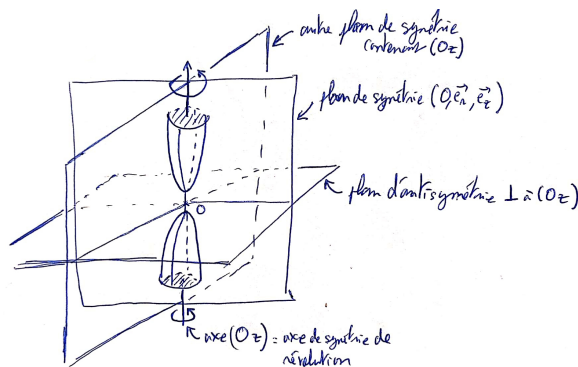 autre plan de symétrie
contenant (Oz)
plan de symétrie (O, e⃗r, e⃗z)
plan d'antisymétrie ⊥ à (Oz)
O
axe (Oz) = axe de symétrie de
révolution